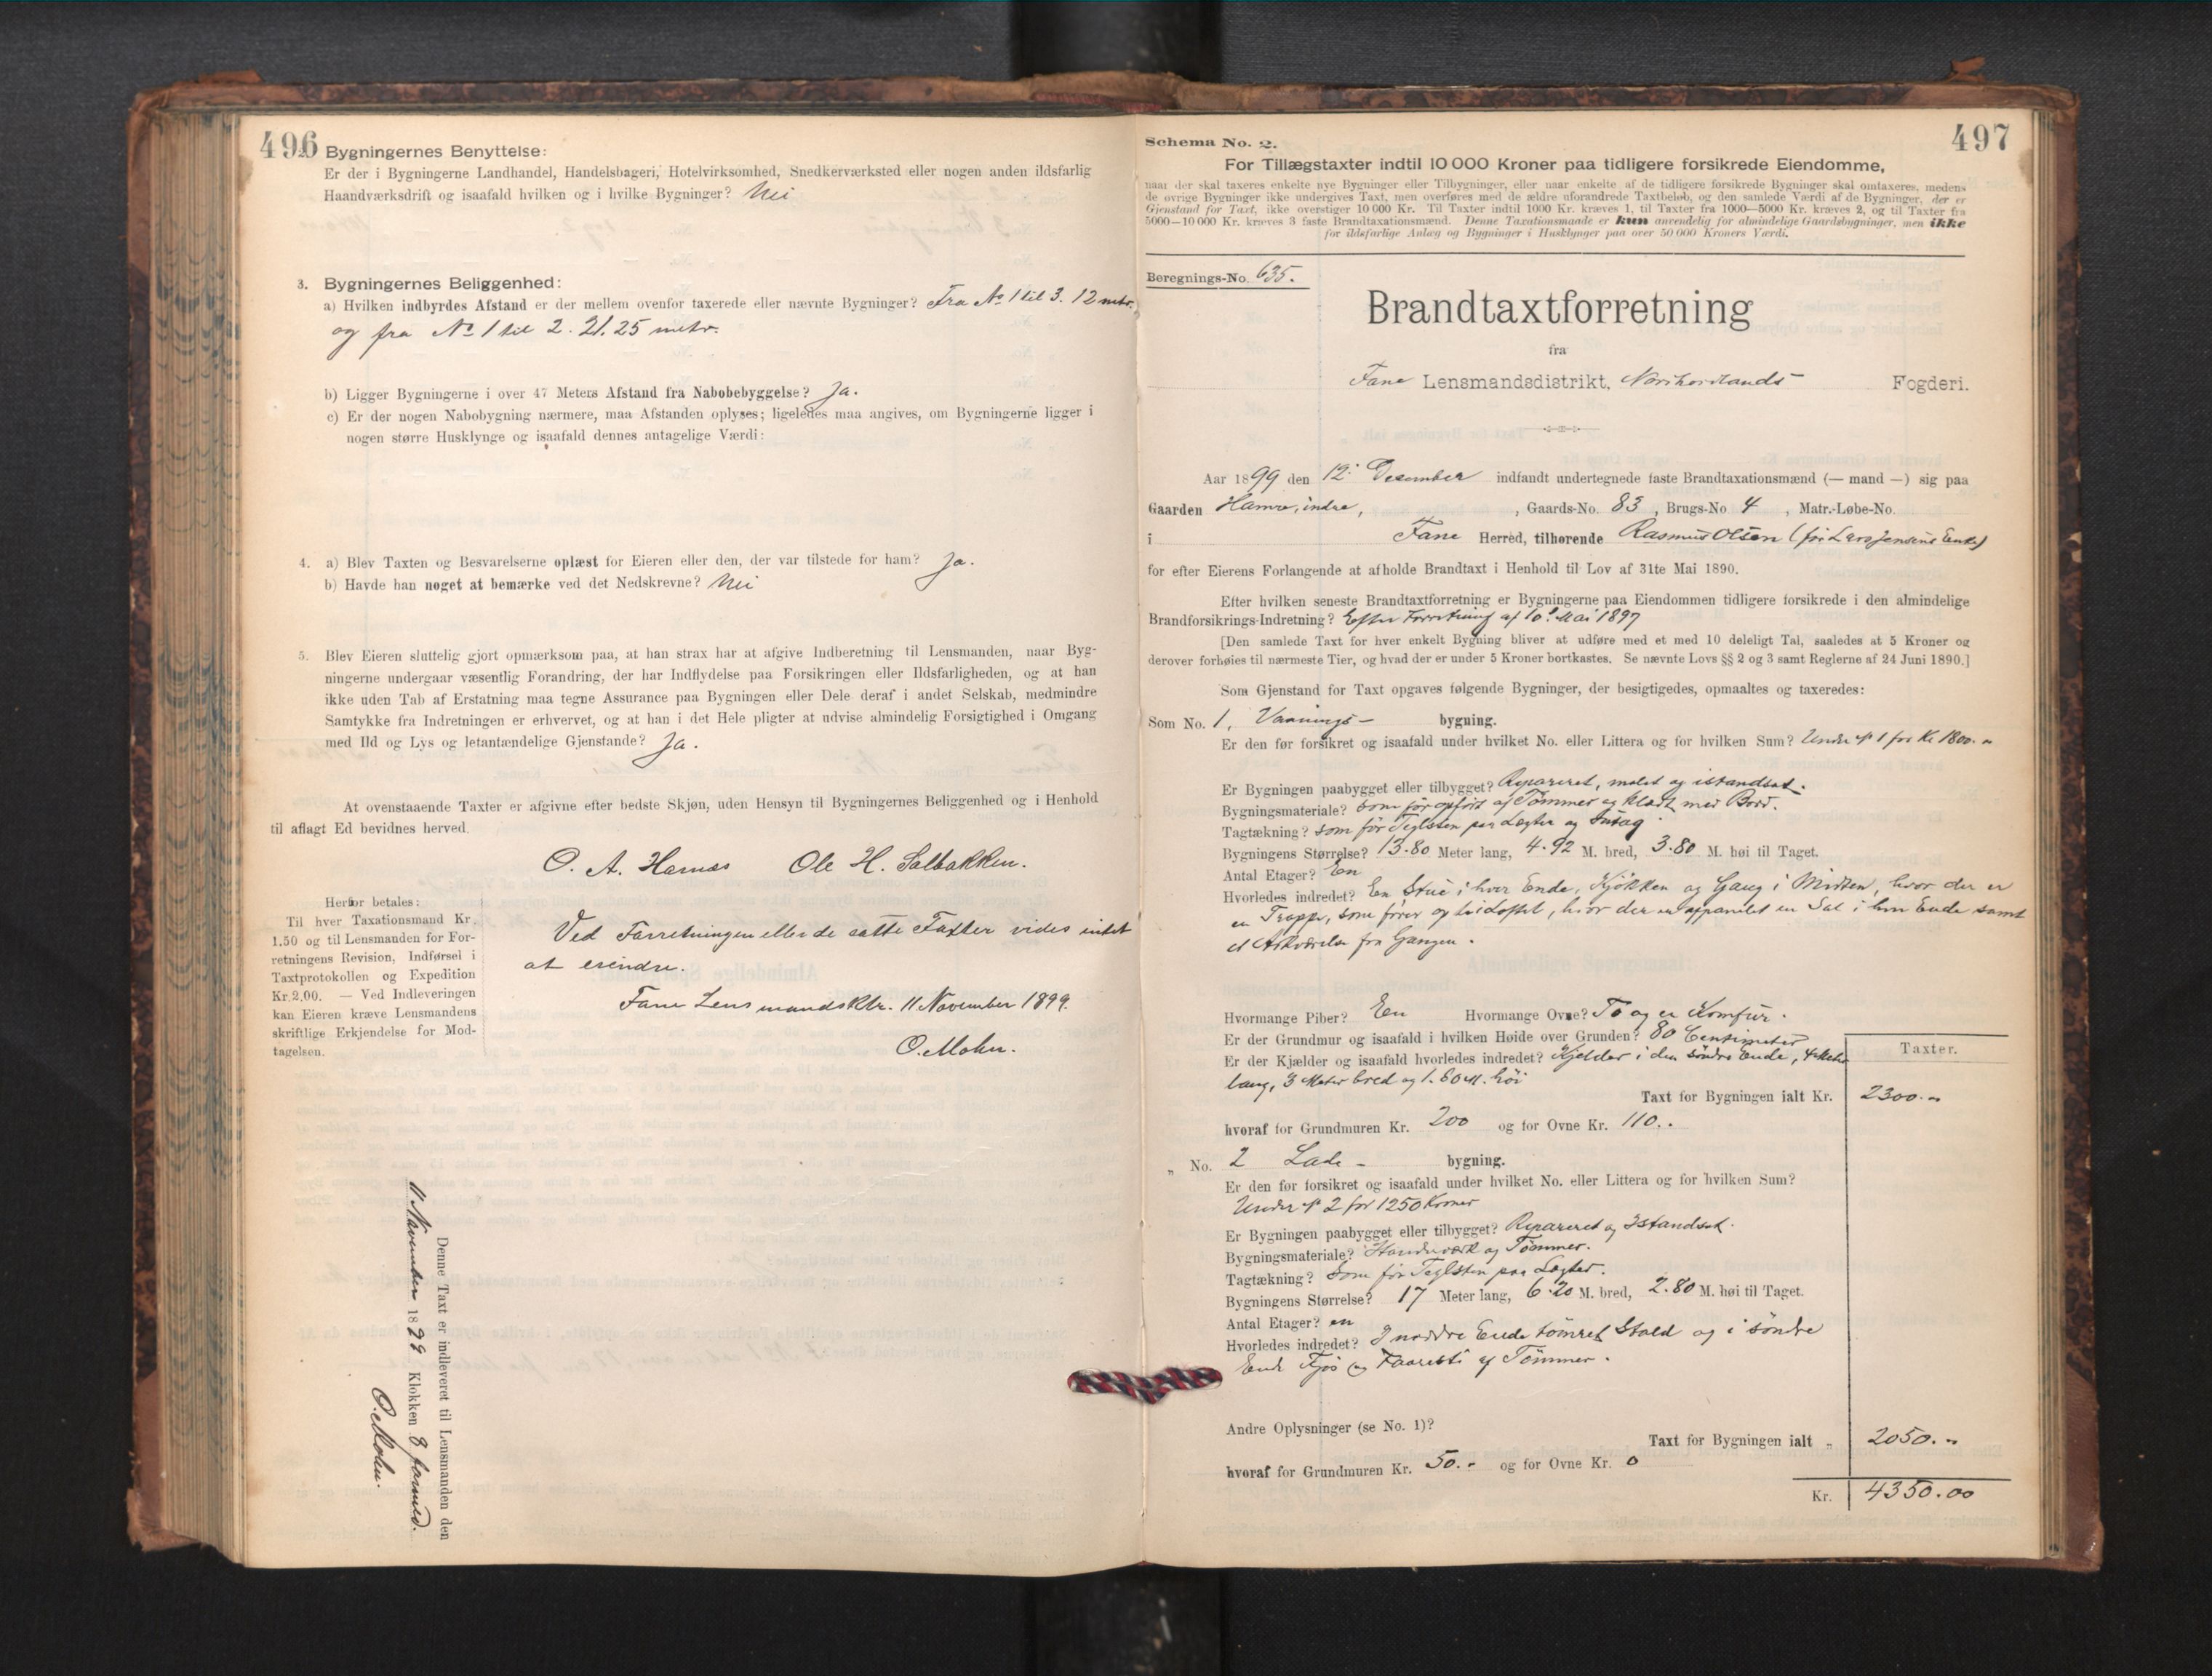 496
2. Bygningernes Benyttelse:
Er der i Bygningerne Landhandel, Handelsbageri, Hotelvirksomhed, Snedkerværksted eller nogen anden ildsfarlig
Haandværksdrift og isaafald hvilken og i hvilke Bygninger? Nei
3. Bygningernes Beliggenhed:
a) Hvilken indbyrdes Afstand er der mellem ovenfor taxerede eller nævnte Bygninger? Fra No 1 til 3. 12 mtr.
og fra No 1 til 2. 21.25 metr.
b) Ligger Bygningerne i over 47 Meters Afstand fra Nabobebyggelse? Ja.
c) Er der nogen Nabobygning nærmere, maa Afstanden oplyses; ligeledes maa angives, om Bygningerne ligger i
nogen større Husklynge og isaafald dennes antagelige Værdi:
4. a) Blev Taxten og Besvarelserne oplæst for Eieren eller den, der var tilstede for ham? Ja.
b) Havde han noget at bemærke ved det Nedskrevne? Nei
5. Blev Eieren sluttelig gjort opmærksom paa, at han strax har at afgive Indberetning til Lensmanden, naar Byg-
ningerne undergaar væsentlig Forandring, der har Indflydelse paa Forsikringen eller Ildsfarligheden, og at han
ikke uden Tab af Erstatning maa tegne Assurance paa Bygningen eller Dele deraf i andet Selskab, medmindre
Samtykke fra Indretningen er erhvervet, og at han i det Hele pligter at udvise almindelig Forsigtighed i Omgang
med Ild og Lys og letantændelige Gjenstande? Ja.
At ovenstaaende Taxter er afgivne efter bedste Skjøn, uden Hensyn til Bygningernes Beliggenhed og i Henhold
til aflagt Ed bevidnes herved.
O. A. Hamas Ole H. Sælbakken.
Herfor betales:
Til hver Taxationsmand Kr.
1.50 og til Lensmanden for For-
retningens Revision, Indførsel i
Taxtprotokollen og Expedition
Kr. 2.00. — Ved Indleveringen
kan Eieren kræve Lensmandens
skriftlige Erkjendelse for Mod-
tagelsen.
Ved Forretningen eller de satte Taxter vides intet
at erindre.
Fane Lensmandsktr. 11 November 1899.
O. Mohn.
Denne Taxt er indleveret til Lensmanden den
11 November 1899 Klokken 8 formid.
O. Mohn.
497
Schema No. 2.
For Tillægstaxter indtil 10 000 Kroner paa tidligere forsikrede Eiendomme,
naar der skal taxeres enkelte nye Bygninger eller Tilbygninger, eller naar enkelte af de tidligere forsikrede Bygninger skal omtaxeres, medens
de øvrige Bygninger ikke undergives Taxt, men overføres med de ældre uforandrede Taxtbeløb, og den samlede Værdi af de Bygninger, der er
Gjenstand for Taxt, ikke overstiger 10 000 Kr. Til Taxter indtil 1000 Kr. kræves 1, til Taxter fra 1000—5000 Kr. kræves 2, og til Taxter fra
5000—10 000 Kr. kræves 3 faste Brandtaxationsmænd. Denne Taxationsmaade er kun anvendelig for almindelige Gaardsbygninger, men ikke
for ildsfarlige Anlæg og Bygninger i Husklynger paa over 50 000 Kroners Værdi.
Beregnings-No. 635.
Brandtaxtforretning
fra
Fane Lensmandsdistrikt, Nordhordlands Fogderi.
Aar 1899 den 12. Desember indfandt undertegnede faste Brandtaxationsmænd (— mand —) sig paa
Gaarden Hamre, indre, , Gaards-No. 83, Brugs-No 4, Matr.-Løbe-No.
i Fane Herred, tilhørende Rasmus Olsen (før Lars Jensens Enke)
for efter Eierens Forlangende at afholde Brandtaxt i Henhold til Lov af 31te Mai 1890.
Efter hvilken seneste Brandtaxtforretning er Bygningerne paa Eiendommen tidligere forsikrede i den almindelige
Brandforsikrings-Indretning? Efter Forretning af 10. Mai 1897
[Den samlede Taxt for hver enkelt Bygning bliver at udføre med et med 10 deleligt Tal, saaledes at 5 Kroner og
derover forhøies til nærmeste Tier, og hvad der er under 5 Kroner bortkastes. Se nævnte Lovs §§ 2 og 3 samt Reglerne af 24 Juni 1890.]
Som Gjenstand for Taxt opgaves følgende Bygninger, der besigtigedes, opmaaltes og taxeredes:
Som No. 1, Vaanings- bygning.
Er den før forsikret og isaafald under hvilket No. eller Littera og for hvilken Sum? Under No 1 for Kr 1800.-
Er Bygningen paabygget eller tilbygget? Repareret, malet og istandsat.
Bygningsmateriale? Som før opført af Tømmer og klædt med Bord.
Tagtækning? Som før Teglsten paa Lægter og
Bygningens Størrelse? 13.80 Meter lang, 4.92 M. bred, 3.80 M. høi til Taget.
Antal Etager? En
Hvorledes indredet? En Stue i hver Ende, Kjøkken og Gang i Midten, hvor der er
en Trappe, som fører og til Loftet, hvor der er appanelet en Sal i hver Ende samt
et Arkværelse fra Gangen.
Hvormange Piber? En Hvormange Ovne? To og en Komfur.
Er der Grundmur og isaafald i hvilken Høide over Grunden? 80 Centimeter
Er der Kjælder og isaafald hvorledes indredet? Kjelder i den søndre Ende, 4 Meter
lang, 3 Meter bred og 1.80 M. høi
Taxter.
Taxt for Bygningen ialt Kr. 2300.-
hvoraf for Grundmuren Kr. 200 og for Ovne Kr. 110.-
„ No. 2 Lade- bygning.
Er den før forsikret og isaafald under hvilket No. eller Littera og for hvilken Sum?
Under No 2 for 1250 Kroner
Er Bygningen paabygget eller tilbygget? Repareret og Istandsat.
Bygningsmateriale? Standværk og Tømmer.
Tagtækning? Som før Teglsten paa Lægter.
Bygningens Størrelse? 17 Meter lang, 6.20 M. bred, 2.80 M. høi til Taget.
Antal Etager? en
Hvorledes indredet? I nordre Ende tømret Stald og i søndre
Ende Fjøs og Faaresti af Tømmer.
Andre Oplysninger (se No. 1)?
Taxt for Bygningen ialt „ 2050.-
hvoraf for Grundmuren Kr. 50.- og for Ovne Kr. 0
Kr. 4350.00